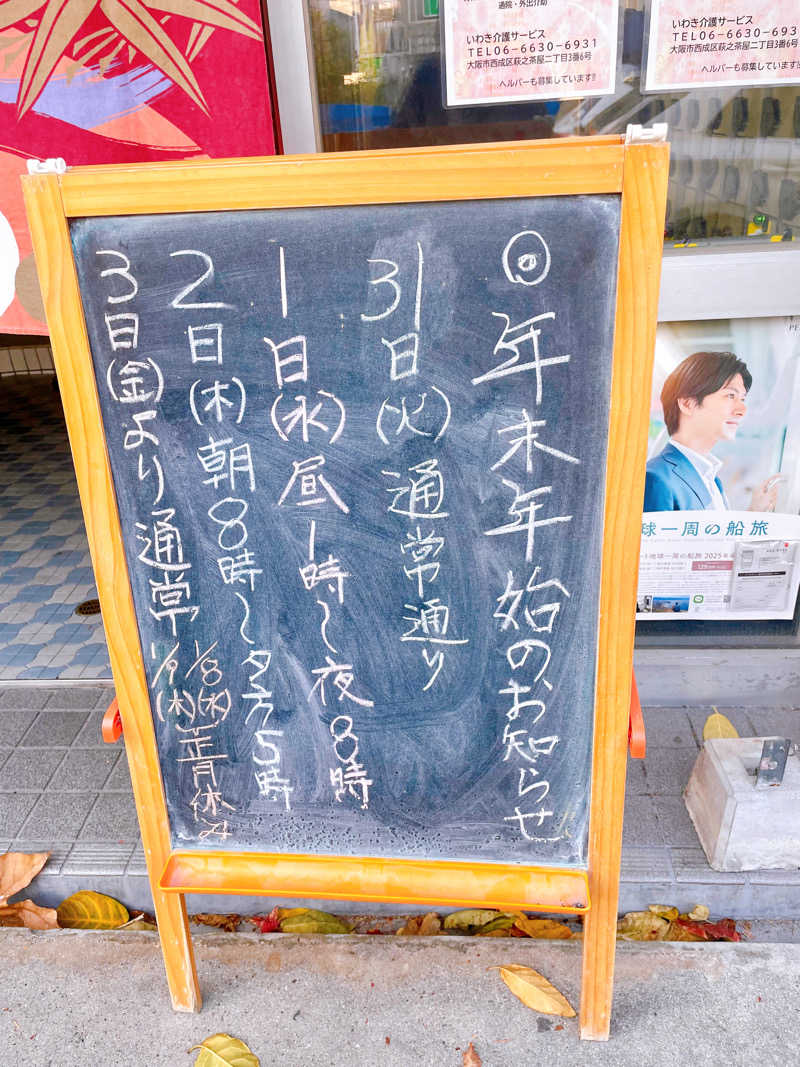 通院・外出介助
いわき介護サービス
TEL06-6630-6931
大阪市西成区萩之茶屋二丁目3番6号
ヘルパーも募集しています!!
いわき介護サービス
TEL06-6630-6931
大阪市西成区萩之茶屋二丁目3番6号
ヘルパーも募集しています!!
年末年始のお知らせ
31日(火)通常通り
1日(水)昼1時〜夜8時
2日(木)朝8時〜夕方5時
3日(金)より通常
1/8(水)
1/9(木)
正月休み
地球一周の船旅
地球一周の船旅 2025年